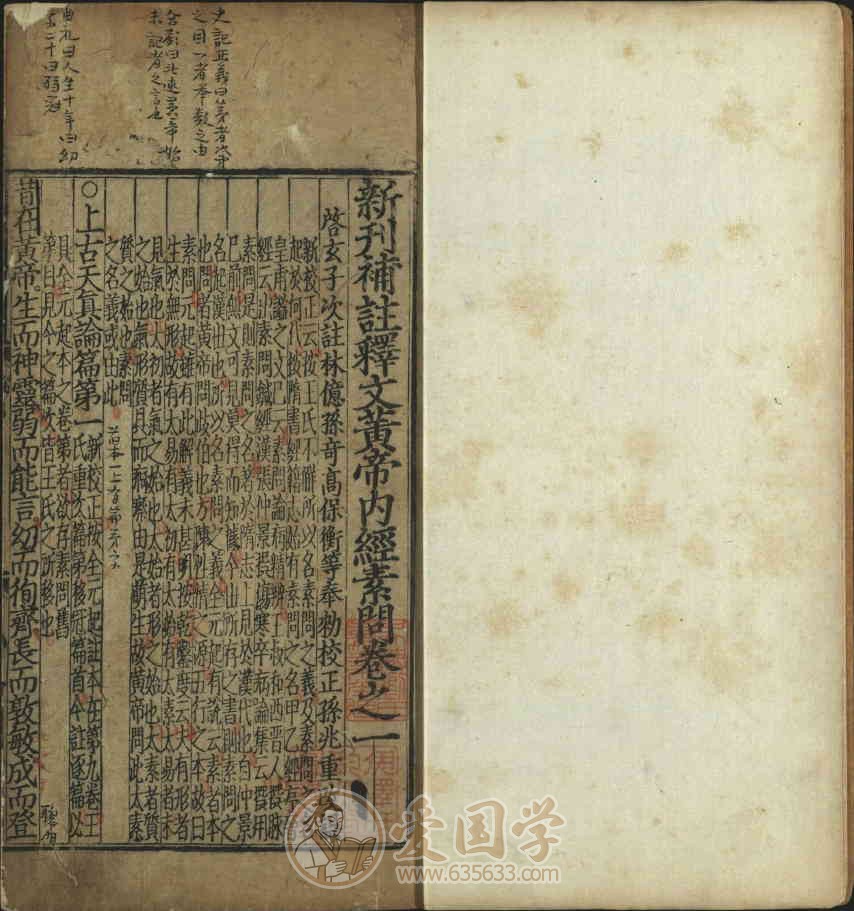 史記正義曰第者次第
之目一者舉數之由
曲礼曰人生十年曰幻
新刊補註釋文黃帝內經素問卷之一
啓玄子次註林億孫奇高保衡等奉勑校正孫兆重
新校正云按王氏不解所以名素問之義及素問之名
起於何代按隋書經籍志始有素問之名甲乙經序晋
皇甫謐之文已云素問論病精辨王叔和西晋人撰脉
經云出素問鍼經漢張仲景撰傷寒卒病論集云撰用
素問是則素問之名著於隋志上見於漢代也自仲景
已前無文可見莫得而知據今世所存之書則素問之
名起漢世也所以名素問之義全元起有說云素者本
也問者黃帝問歧伯也方陳性情之源五行之本故曰
素問元起雖有此解義未甚明按乾鑿度云夫有形者
生於無形故有太易有太初有太始有太素太易者未
見氣也太初者氣之始也太始者形之始也太素者質
之始也氣形質具而痾瘵由是萌生故黃帝問此太素
質之始也素問
之名義或由此
○上古天真論篇第一
新校正按全元起註本在第九卷王
氏重次篇第移冠篇首今註逐篇必
具全元起本之卷第者欲存素問舊
第目見今之篇次皆王氏之所移也
昔在黃帝生而神靈弱而能言幼而徇齊長而敦敏成而登
爱国学
www.635633.com